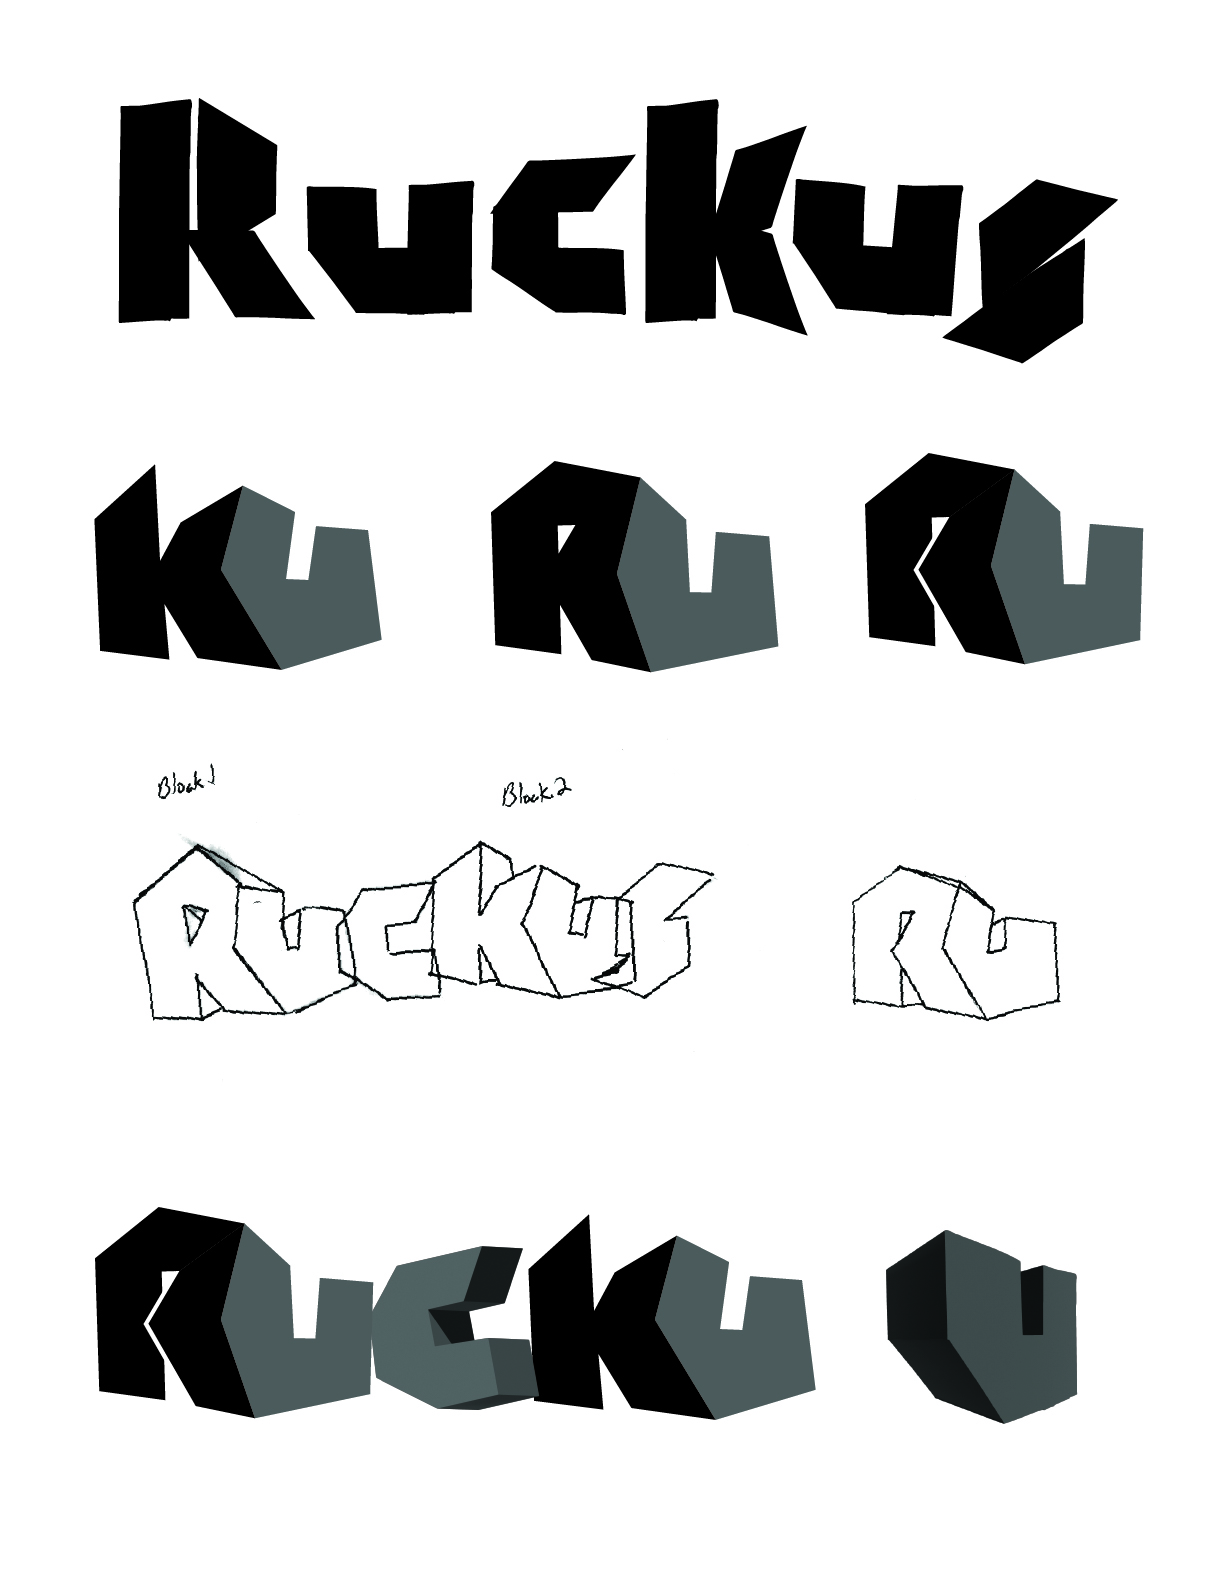 Ruckus
Ku Ru Ru
Block 1 Block 2
Ruckus Ru
Rucku u